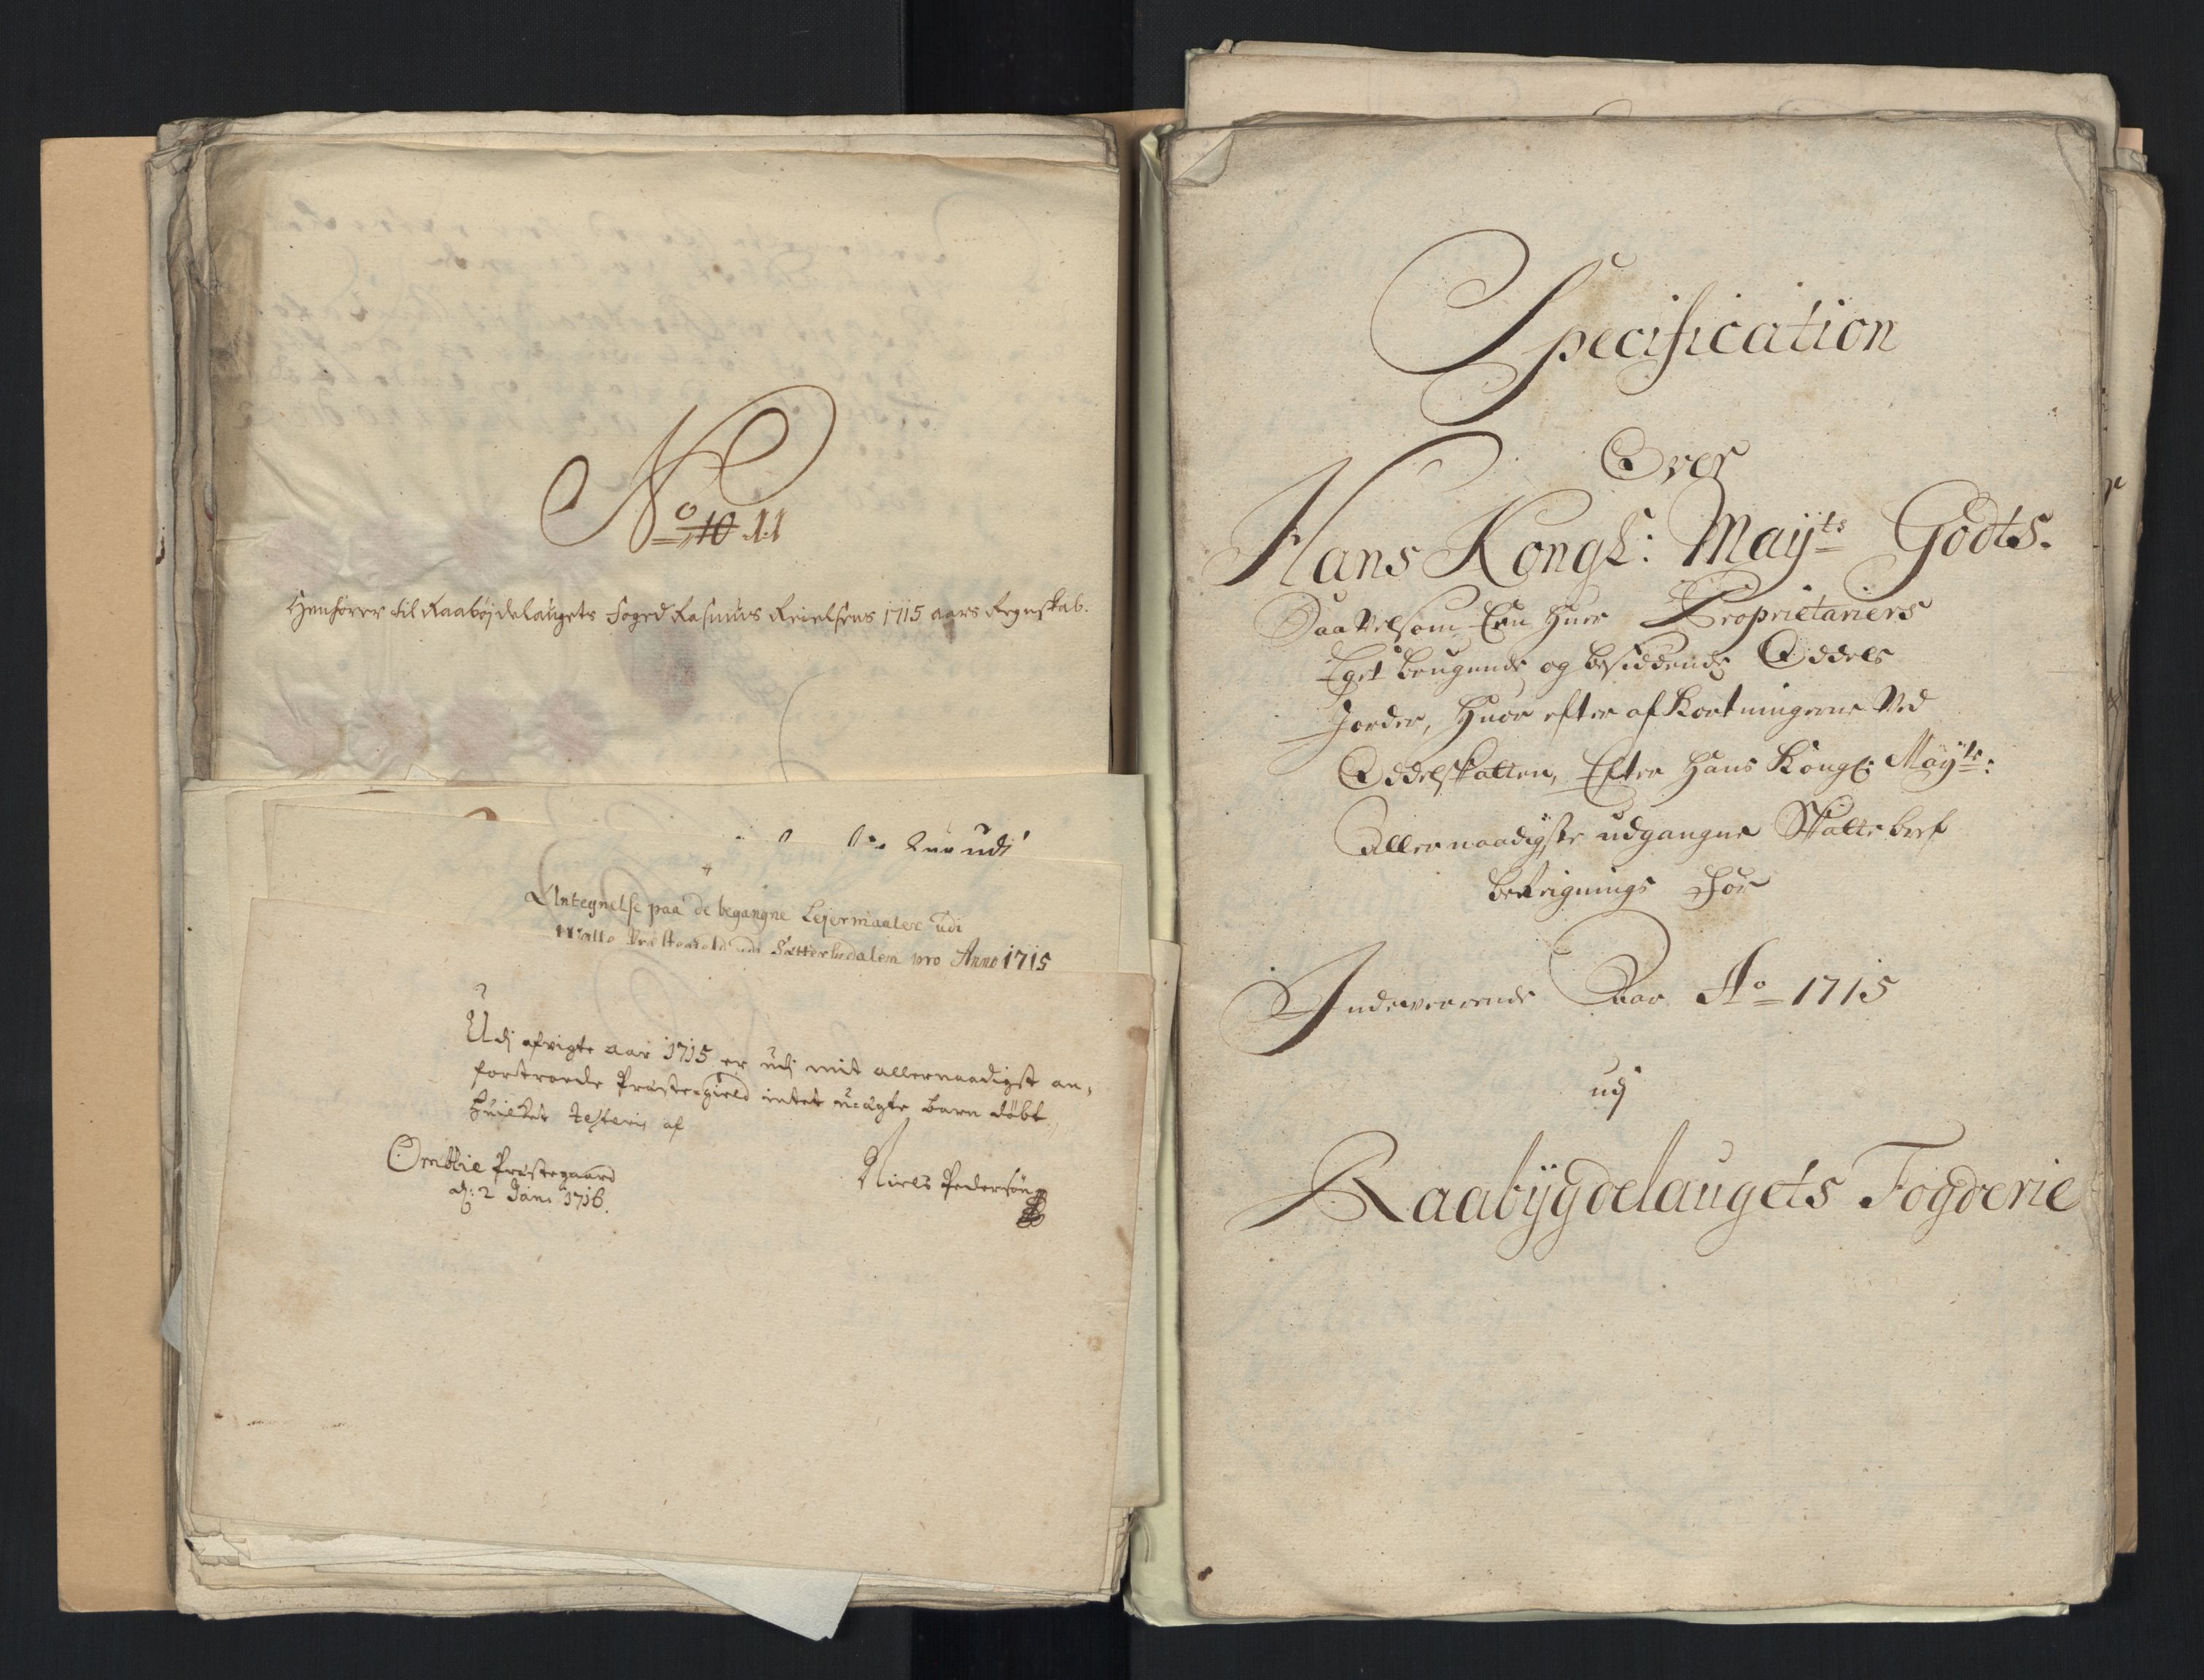 No 10 11
Henhører til Raabøjdelaugets Foged Rasmus Reielsens 1715 aars Regnskab.
udi
Antegnelse paa de begangne Lejermaaler udi
Walle Præstegield udi Sætterlsdalen pro Anno 1715
Udj afvigte aar 1715 er udj mit allernaadigst an,
fortroede Præstegield intet uægte barn døbt,
huilket testeris af
Omblie Præstegaard
dj: 2 Janu 1716.
Niels Pedersøn
Specification
Over
Hans Kongl: Mayts Godts.
Saavelsom Een huer Proprietariers
Eget brugende og besiddende Oddels
Jorder, huor efter afkortningerne ved
Oddelskatten, Efter Hans Kongl: Mayts:
Allernaadigste udgangne Skattebref
beregnings for
Indeværende Aar Ao 1715
udj
Raabÿgdelaugets Fogderie